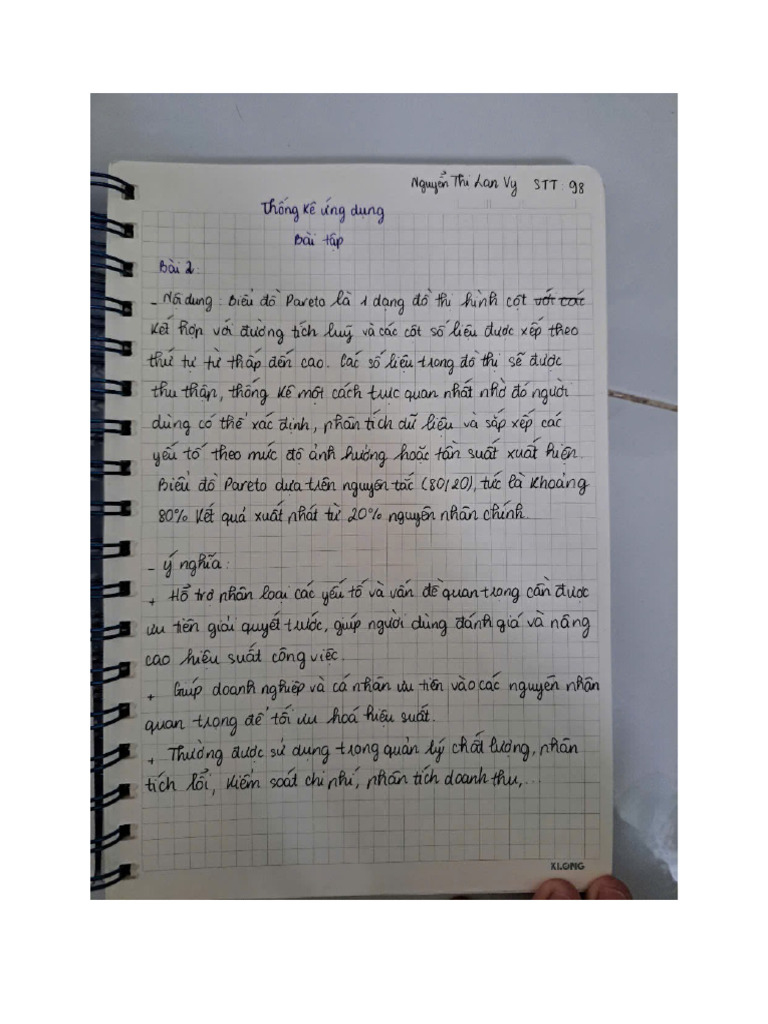 Nguyễn Thi Lan Vy STT: 98
Thống kê ứng dụng
Bài tập
Bài 2:
- Nội dung: Biểu đồ Pareto là 1 dạng đồ thị hình cột với các
kết hợp với đường tích luỹ và các cột số liệu được xếp theo
thứ tự từ thấp đến cao. Các số liệu trong đồ thị sẽ được
thu thập, thống kê một cách trực quan nhất nhờ đó người
dùng có thể xác định, phân tích dữ liệu và sắp xếp các
yếu tố theo mức độ ảnh hưởng hoặc tần suất xuất hiện.
Biểu đồ Pareto dựa trên nguyên tắc (80/20), tức là khoảng
80% kết quả xuất phát từ 20% nguyên nhân chính.
- Ý nghĩa:
+ Hỗ trợ phân loại các yếu tố và vấn đề quan trọng cần được
ưu tiên giải quyết trước, giúp người dùng đánh giá và nâng
cao hiệu suất công việc.
+ Giúp doanh nghiệp và cá nhân ưu tiên vào các nguyên nhân
quan trọng để tối ưu hoá hiệu suất.
+ Thường được sử dụng trong quản lý chất lượng, phân
tích lỗi, kiểm soát chi phí, phân tích doanh thu,...
KLONG